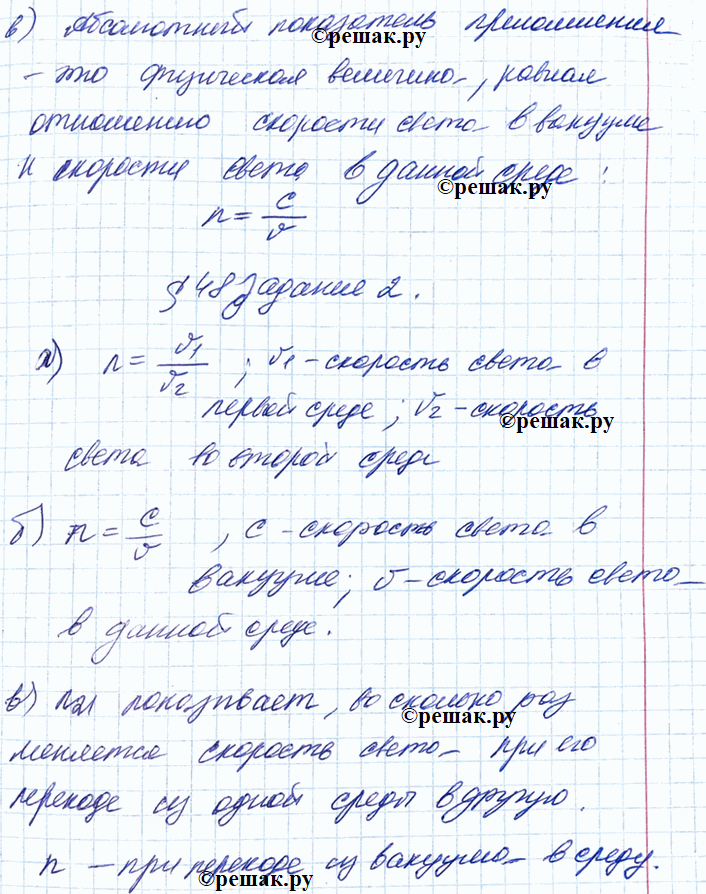 в) Абсолютный показатель преломления
©решак.ру
- это физическая величина, равная
отношению скорости света в вакууме
к скорости света в данной среде:
©решак.ру
n = c/v
§ 48 Задание 2.
а) n = v1/v2 ; v1 - скорость света в
первой среде; v2 - скорость
©решак.ру
света во второй среде
б) n = c/v , c - скорость света в
вакууме; v - скорость света
в данной среде.
в) n21 показывает, во сколько раз
©решак.ру
меняется скорость света при его
переходе из одной среды в другую.
n - при переходе из вакуума в среду.
©решак.ру